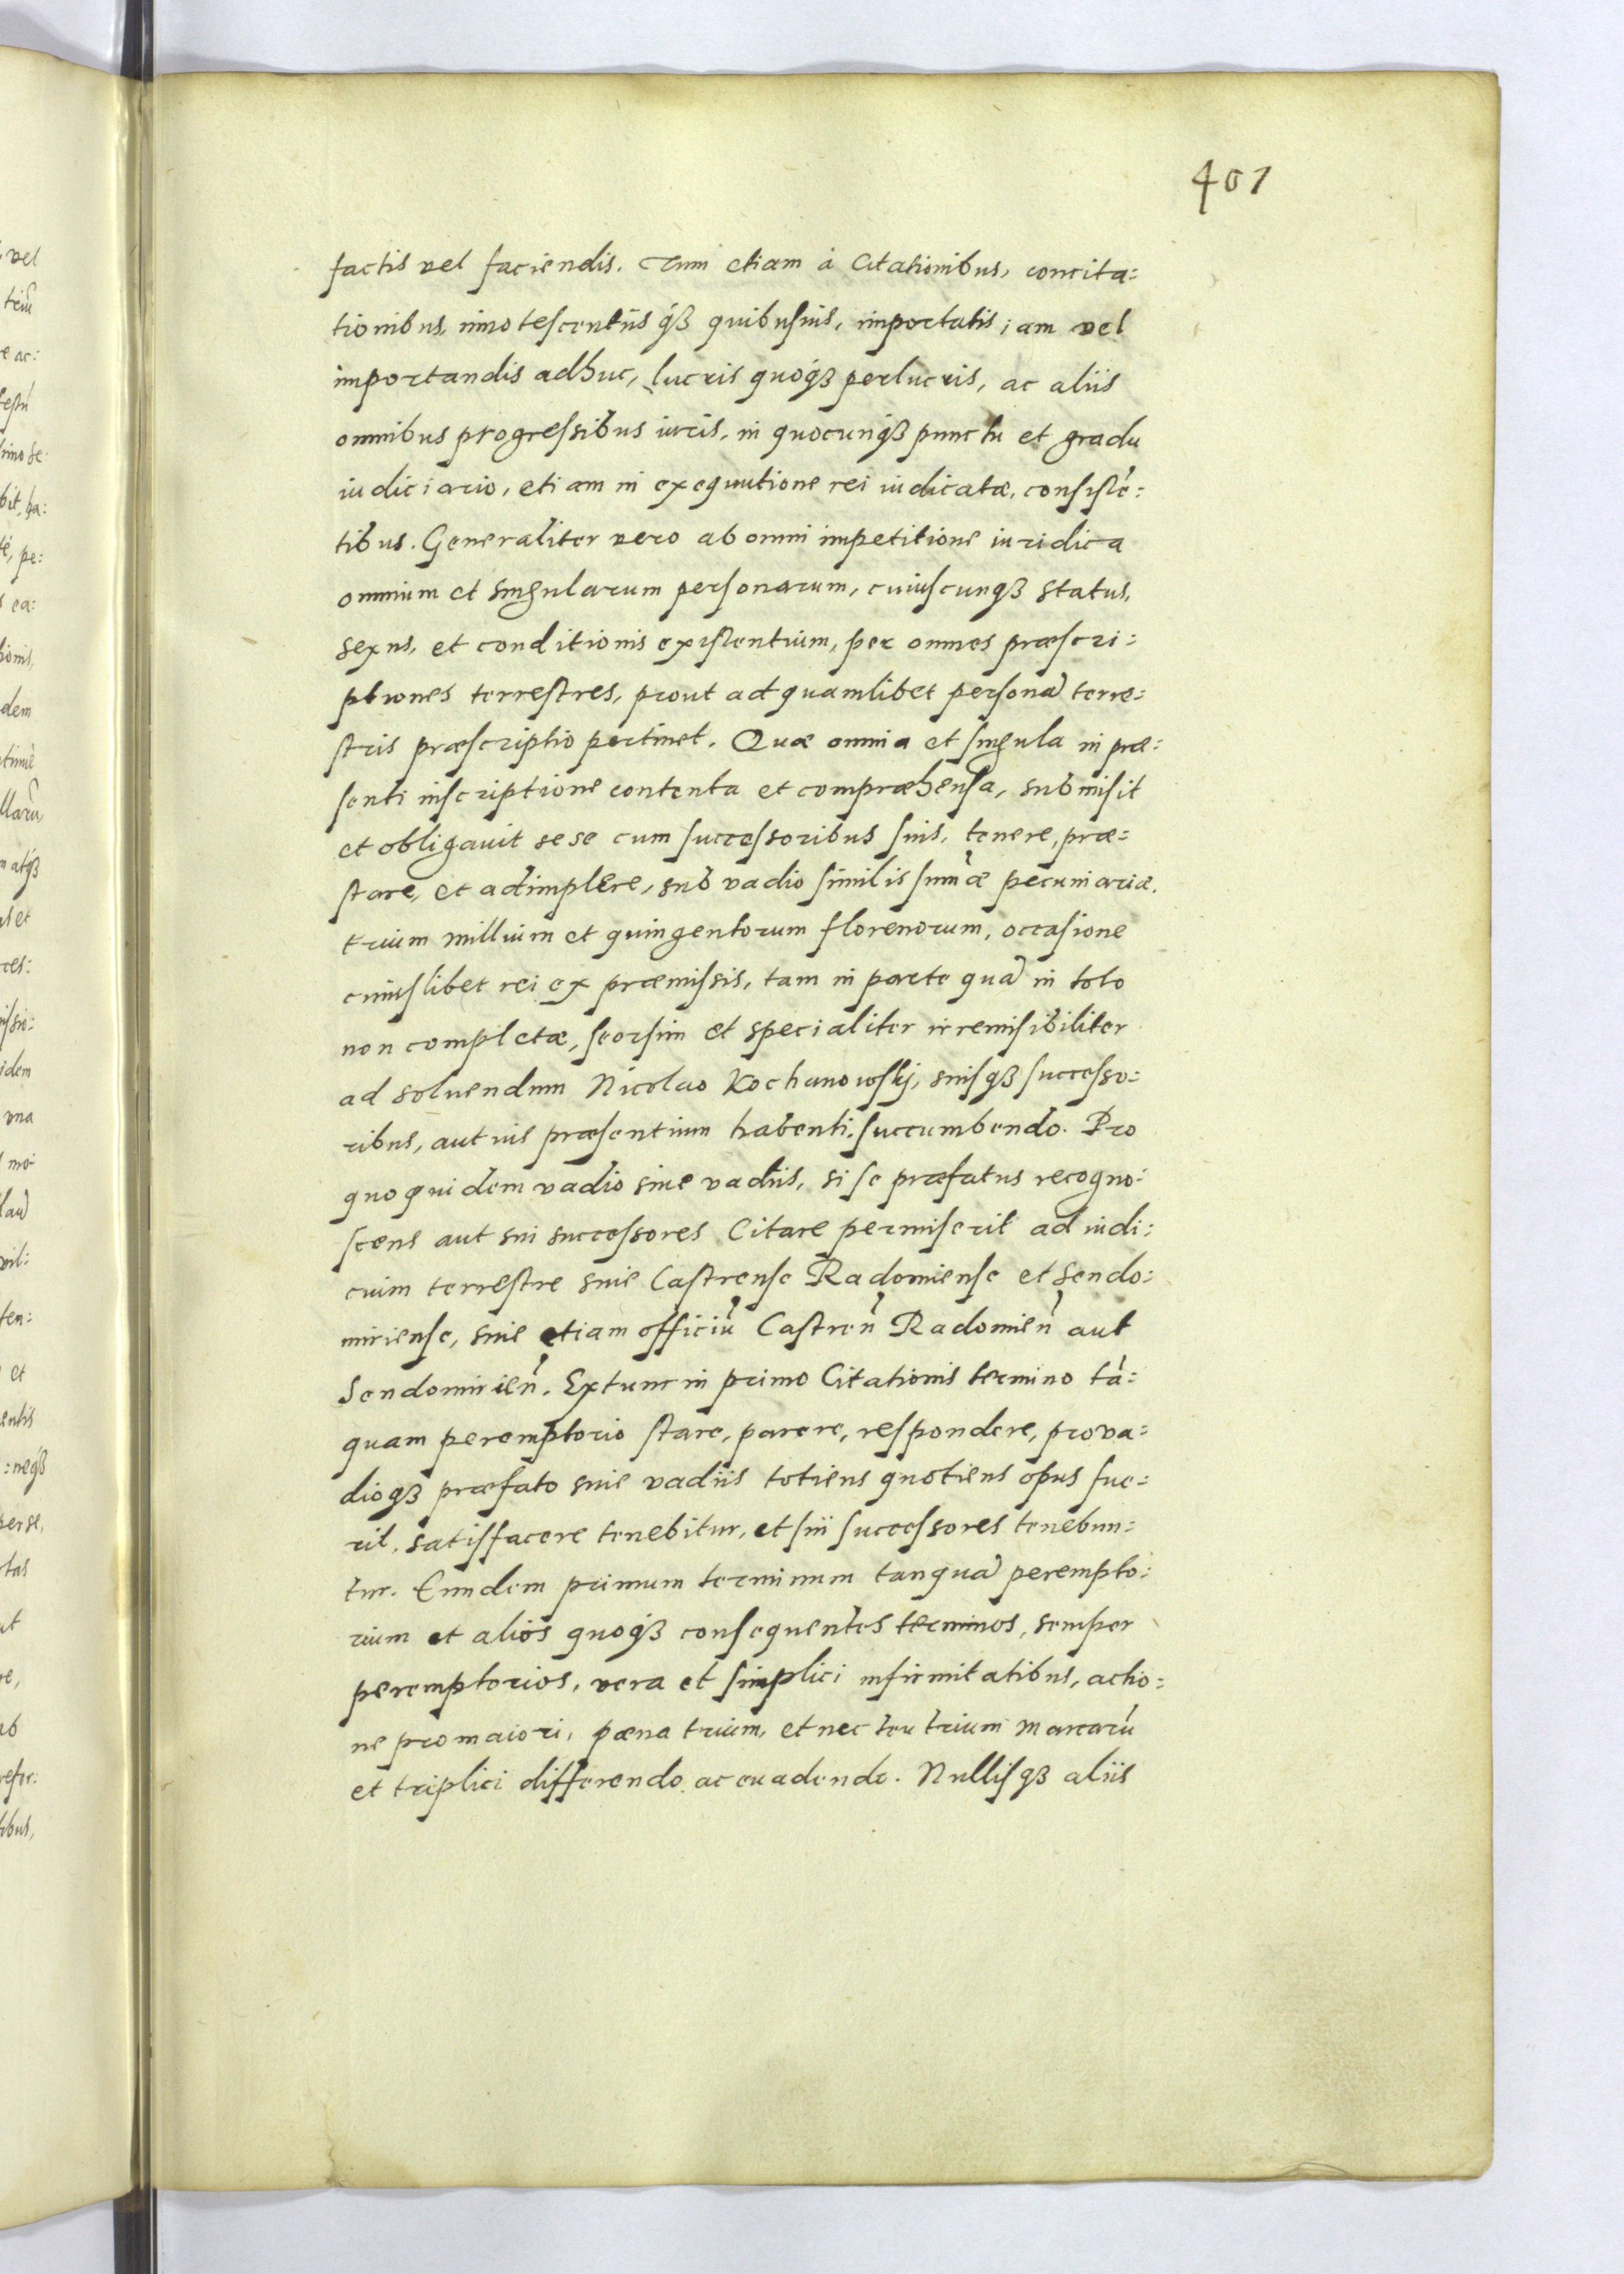 401
factis vel faciendis. Tum etiam à Citationibus, concita=
tionibus, innotescentiis q₃ quibusuis, importatis iam vel
importandis adhuc, lucris quoq₃ perlucris, ac aliis
omnibus progressibus iuris, in quocunq₃ punctu et gradu
iudiciario, etiam in exequutione rei iudicatæ, consistē=
tibus. Generaliter vero ab omni impetitione iuridica
omnium et singularum personarum, cuiuscunq₃ status,
sexus, et conditionis existentium, per omnes præscri=
ptiones terrestres, prout ad quamlibet personā terre=
stris præscriptio pertinet. Quæ omnia et singula in præ=
senti inscriptione contenta et compræhensa, submisit
et obligauit sese cum successoribus suis, tenere, præ=
stare, et adimplere, sub vadio similis sum̃æ pecuniariæ.
trium millium et quingentorum florenorum, occasione
cuiuslibet rei ex præmissis, tam in parte quā in toto
non completæ, seorsim et specialiter irremisibiliter
ad soluendum Nicolao Kochanowskj, suisq₃ successo=
ribus, aut uis præsentium habenti. succumbendo. Pro
quo quidem vadio siue vadiis, si se præfatus recogno=
scens aut sui successores Citare permiserit ad iudi=
cium terrestre siue Castrense Radomiense et Sendo=
miriense, siue etiam officiū Castren̄ Radomien̄ aut
Sendomirien̄. Extunc in primo Citationis termino tā=
quam peremptorio stare, parere, respondere, prova=
dioq₃ præfato siue vadiis totiens quotiens opus fue=
rit, satisfacere tenebitur, et sui successores tenebun=
tur. Eundem primum terminum tanquā perempto=
rium et alios quoq₃ consequentes terminos, semper
peremptorios, vera et simplici infirmitatibus, actio=
ne pro maiori, pæna trium, et nec teu trium marcarū
et triplici differendo ac euadendo. Nullisq₃ aliis